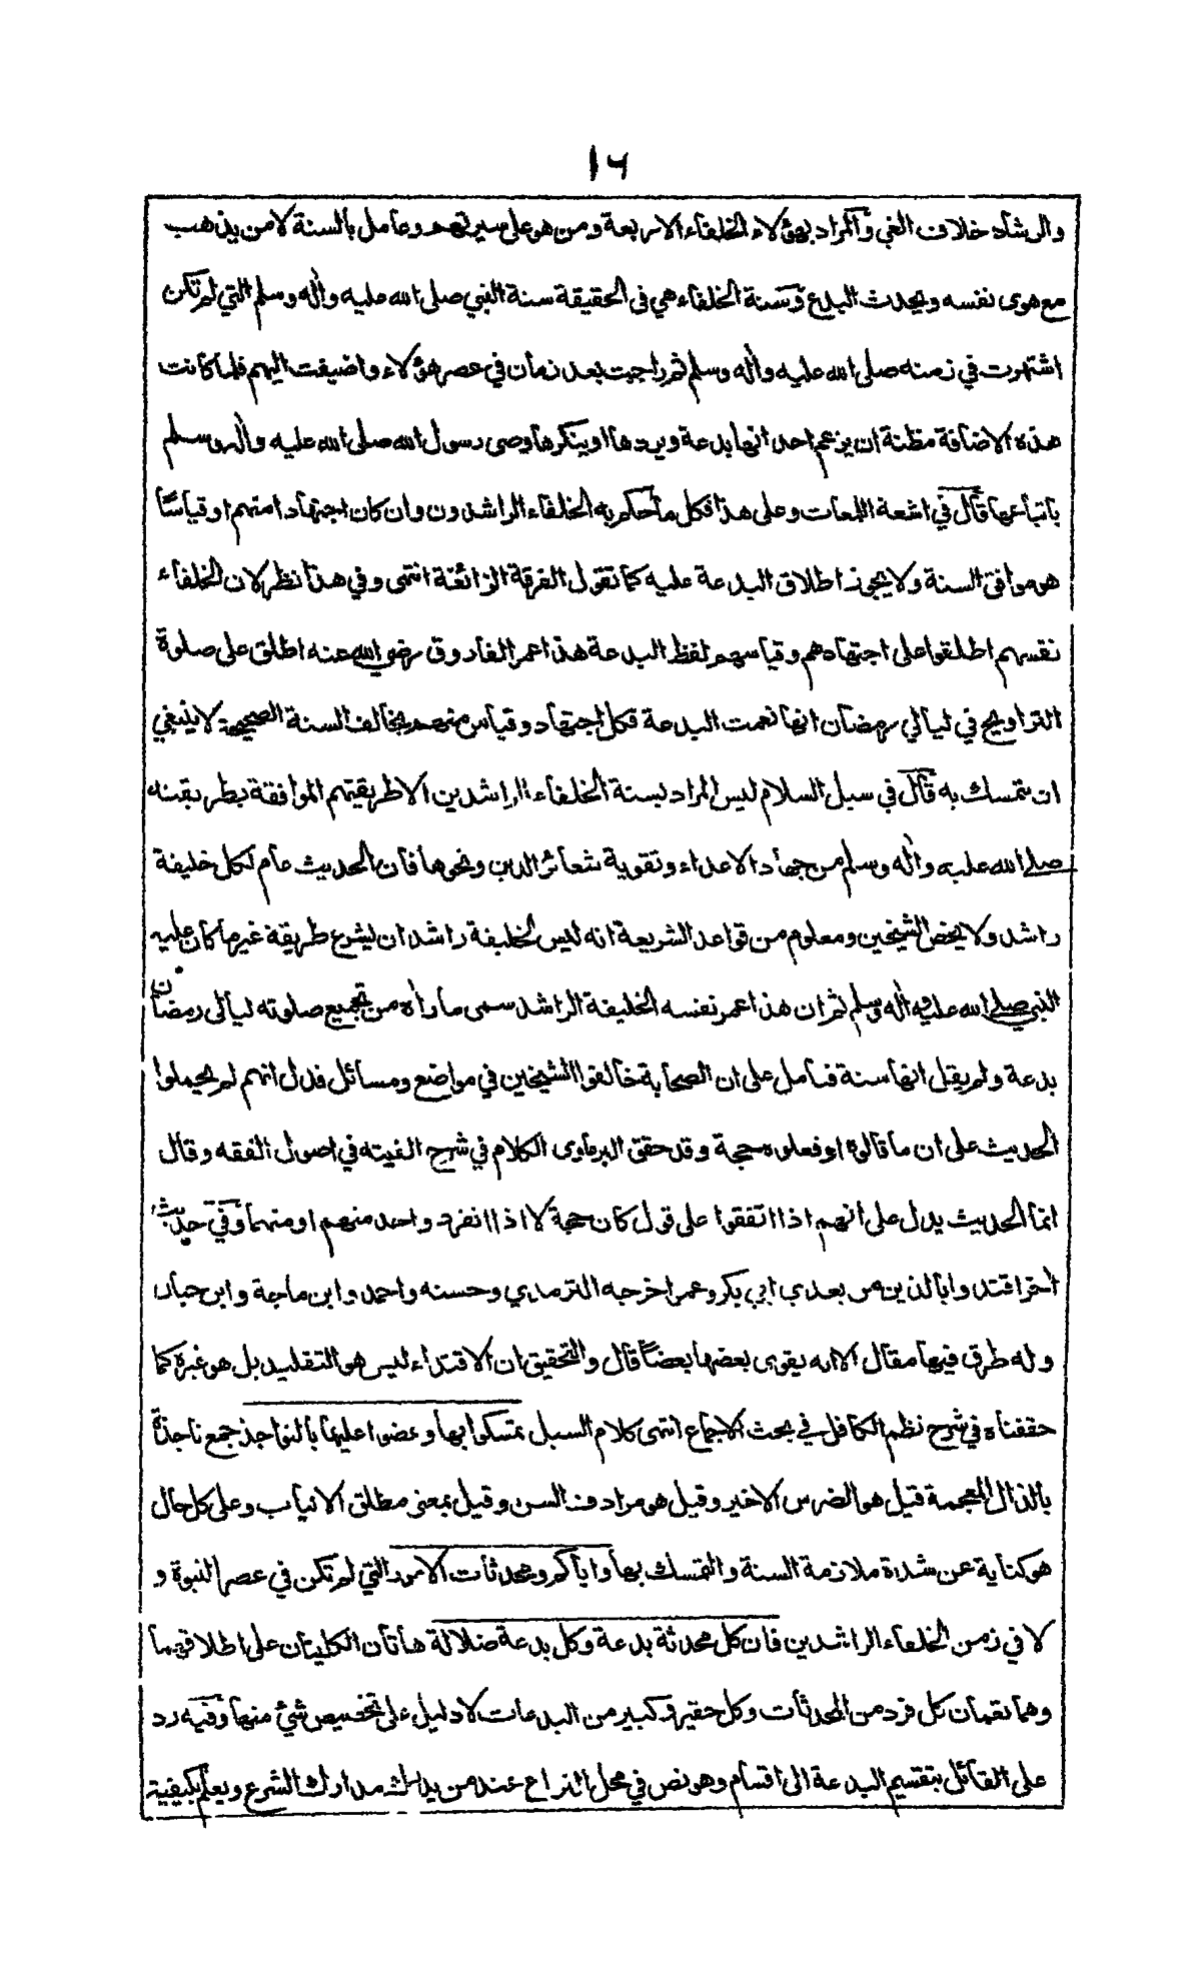 ١٦
والرشاد خلاف الغي والمراد بهؤلاء الخلفاء الاربعة ومن هو على سيرتهم وعامل بالسنة لا من يذهب
مع هوى نفسه ويحدث البدع وسنة الخلفاء هي في الحقيقة سنة النبي صلى الله عليه واله وسلم التي لم تكن
اشتهرت في زمنه صلى الله عليه واله وسلم ثم راجت بعد زمان في عصر هؤلاء واضيفت اليهم فلما كانت
هذه الاضافة مظنة ان يزعم احد انها بدعة ويردها او ينكرها وصى رسول الله صلى الله عليه واله وسلم
باتباعها قال في اشعة اللمعات وعلى هذا فكل ما حكم به الخلفاء الراشدون وان كان اجتهادا منهم او قياسًا
هو موافق السنة ولا يجوز اطلاق البدعة عليه كما تقول الفرقة الزائغة انتهى وفي هذا نظر لان الخلفاء
نفسهم اطلقوا على اجتهادهم وقياسهم لفظ البدعة هذا عمر الفاروق رضي الله عنه اطلق على صلوة
التراويح في ليالي رمضان انها نعمت البدعة فكل اجتهاد وقياس منهم يخالف السنة الصحيحة لا ينبغي
ان يتمسك به قال في سبل السلام ليس المراد بسنة الخلفاء الراشدين الا طريقتهم الموافقة بطريقته
صلى الله عليه واله وسلم من جهاد الاعداء وتقوية شعائر الدين ونحوها فان الحديث عام لكل خليفة
راشد ولا يخص الشيخين ومعلوم من قواعد الشريعة انه ليس لخليفة راشد ان يشرع طريقة غير ما كان عليه
النبي صلى الله عليه واله وسلم ثم ان هذا عمر نفسه الخليفة الراشد سمى ما رأه من تجميع صلوته ليالى رمضان
بدعة ولم يقل انها سنة فتامل على ان الصحابة خالفوا الشيخين في مواضع ومسائل فدل انهم لم يحملوا
الحديث على ان ما قالوه او فعلوه حجة وقد حقق البرماوى الكلام في شرح الفيته في اصول الفقه وقال
انما الحديث يدل على انهم اذا اتفقوا على قول كان حجة لا اذا انفرد واحد منهم او منهما وفي حديث
اخر اقتدوا بالذين من بعدي ابي بكر وعمر اخرجه الترمذي وحسنه واحمد وابن ماجة وابن حبان
وله طرق فيها مقال الا انه يقوى بعضها بعضًا قال والتحقيق ان الاقتداء ليس هو التقليد بل هو غيره كما
حققناه في شرح نظم الكافل في بحث الاجماع انتهى كلام السبل تمسكوا بها وعضوا عليها بالنواجذ جمع ناجذة
بالذال المعجمة قيل هو الضرس الاخير وقيل هو مرادف السن وقيل بمعنى مطلق الانياب وعلى كل حال
هو كناية عن شدة ملازمة السنة والتمسك بها واياكم ومحدثات الامور التي لم تكن في عصر النبوة و
لا في زمن الخلفاء الراشدين فان كل محدثة بدعة وكل بدعة ضلالة هاتان الكليتان على اطلاقهما
وهما تعمان كل فرد من المحدثات وكل حقير وكبير من البدعات لا دليل على تخصيص شئ منها وفيه رد
على القائل بتقسيم البدعة الى اقسام وهو نص في محل النزاع عند من يدرك مدارك الشرع ويعلم بكيفية